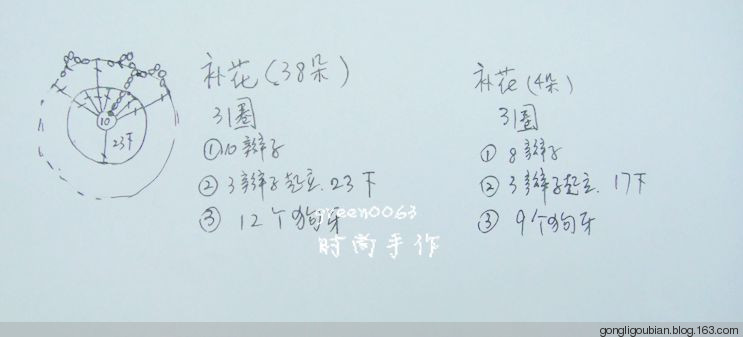 补花(38朵)
31圈
①10辫子
②3辫子起立.23下
③12个狗牙
10
23下
补花(4朵)
31圈
①8辫子
②3辫子起立.17下
③9个狗牙
green0063
时尚手作
gongligoubian.blog.163.com